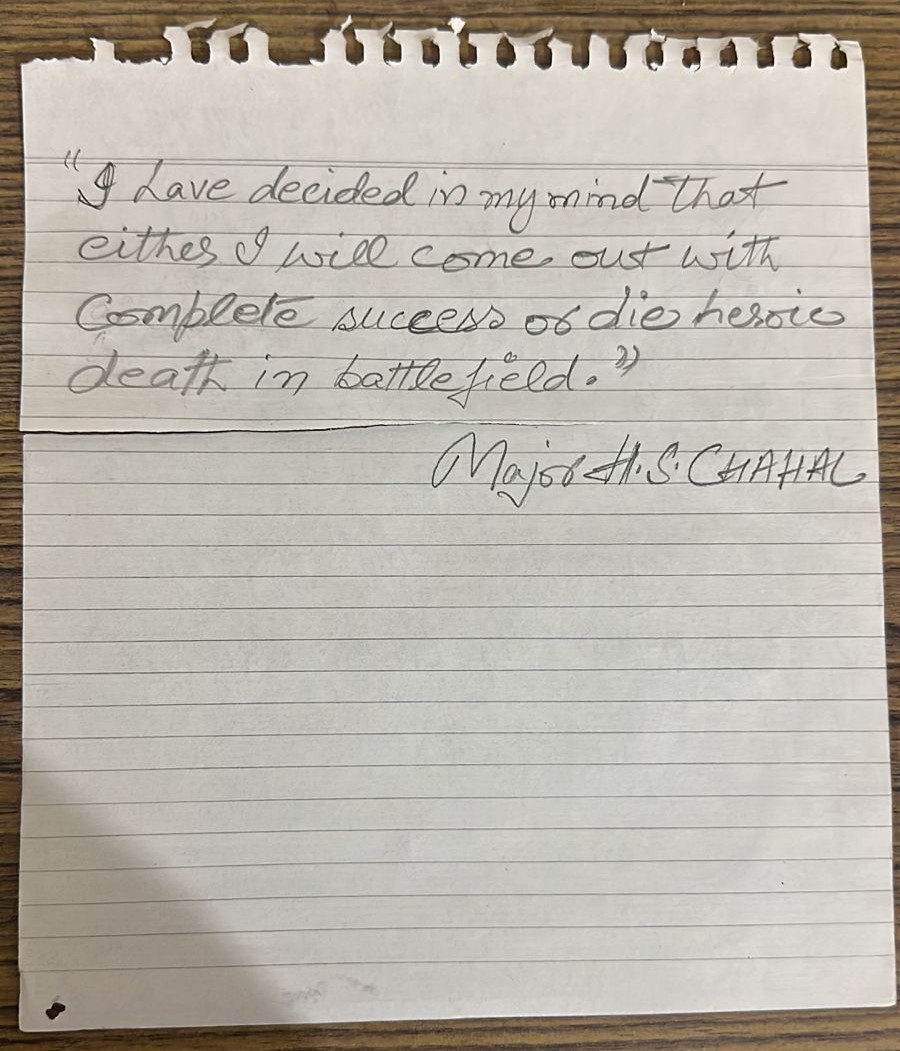 "I have decided in my mind that
either I will come out with
Complete success or die heroic
death in battlefield."
Major H.S. CHAHAL